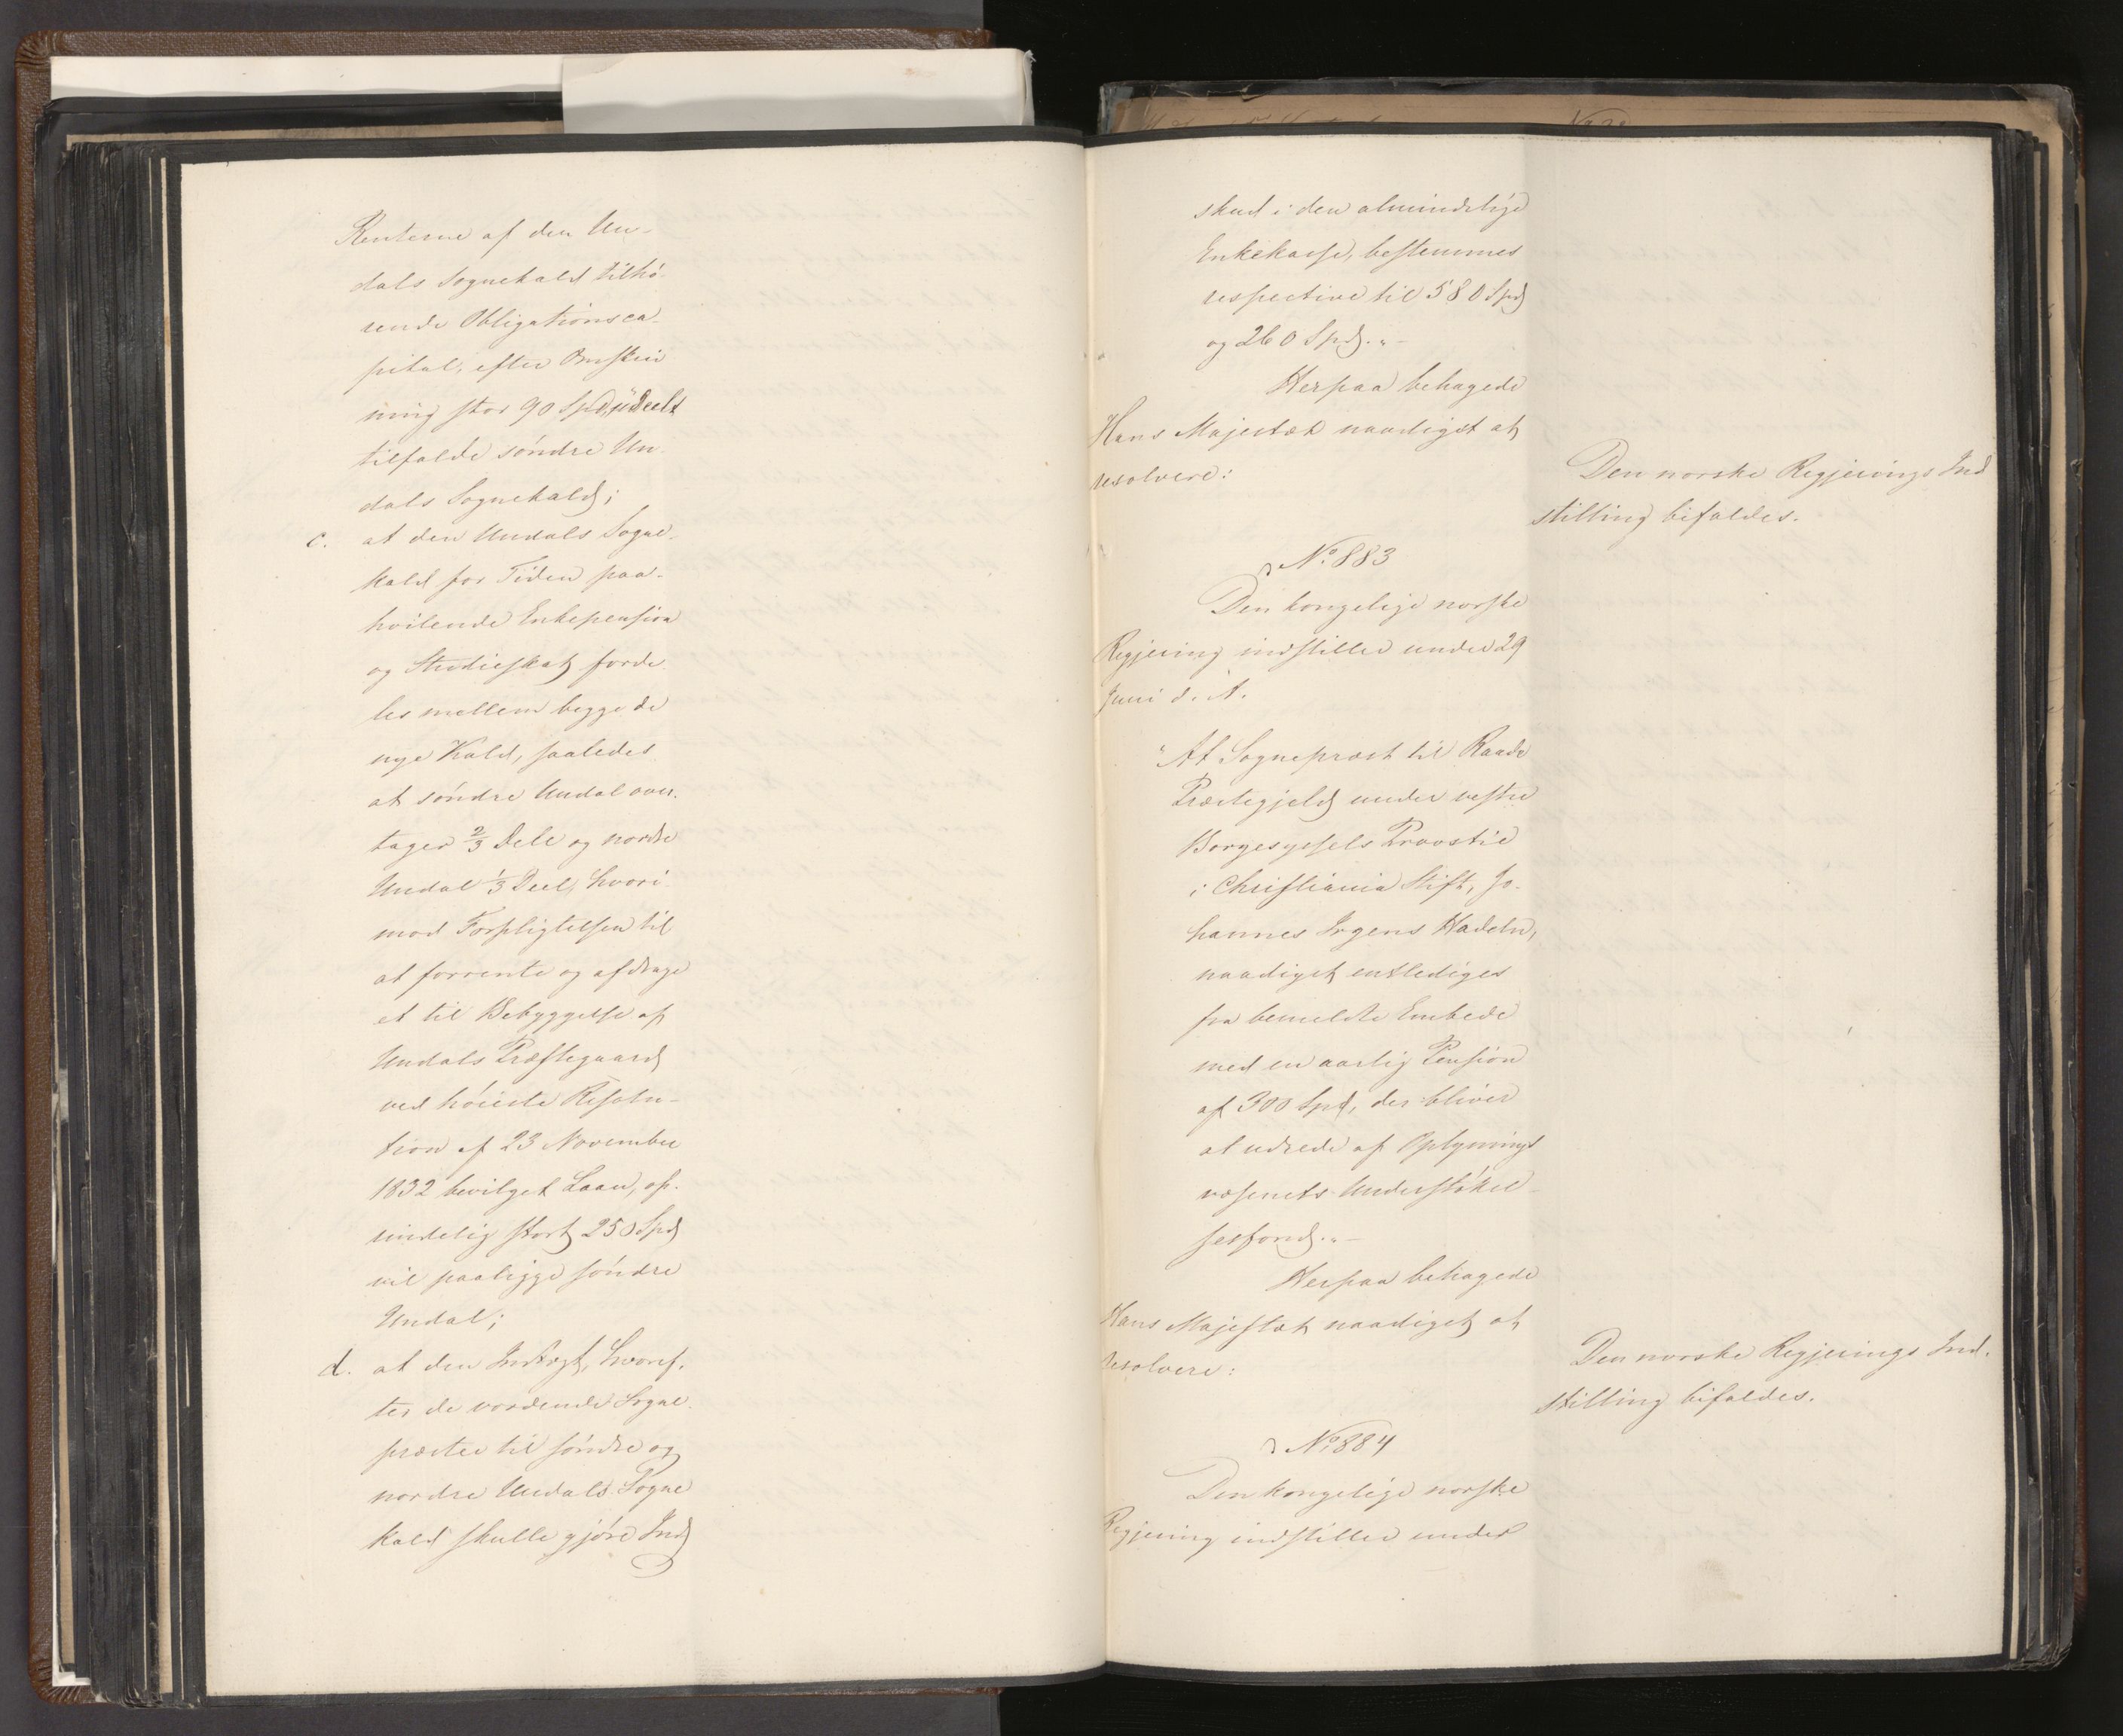 Renterne af den Un-
dals Sognekald tilhö-
rende Obligationsca-
pital, efter Omskriv
ning stor 90 Spd, udeelt
tilfalde söndre Un-
dals Sognekald;
c. at den Undals Sogne-
kald for Tiden paa-
hvilende Enkepension
og Studieskat forde-
les mellem begge de
nye Kald, saaledes
at söndre Undal over-
tager 2/3 Dele og nordre
Undal 1/3 Deel, hvori-
mod Forpligtelsen til
at forrente og afdrage
et til Bebyggelse af
Undals Præstegaard
ved höieste Resolu-
tion af 23 November
1832 bevilget Laan, op-
rindelig stort 250 Spd
vil paaligge söndre
Undal;
d. at den Indtægt, hvoref-
ter de vordende Sogne-
præster til söndre og
nordre Undals Sogne
kald skulle gjöre Ind
skud i den almindelige
Enkekasse, bestemmes
respective til 580 Spd
og 260 Spd." -
Herpaa behagede
Hans Majestæt naadigst at
resolvere:
Den norske Regjerings Ind
stilling bifaldes.
No. 883
Den kongelige norske
Regjering indstiller under 29
Juni d. A.
"At Sognepræst til Raade
Præstegjeld under vestre
Borgesyssels Provstie
i Christiania Stift, Jo-
hannes Irgens Hadeln,
naadigst entlediges
fra bemeldte Embede
med en aarlig Pension
af 300 Spd, der bliver
at udrede af Oplysnings
væsenets Understöttel-
sesfond." -
Herpaa behagede
Hans Majestæt naadigst at
resolvere:
Den norske Regjerings Ind-
stilling bifaldes.
No. 884
Den kongelige norske
Regjering indstiller under